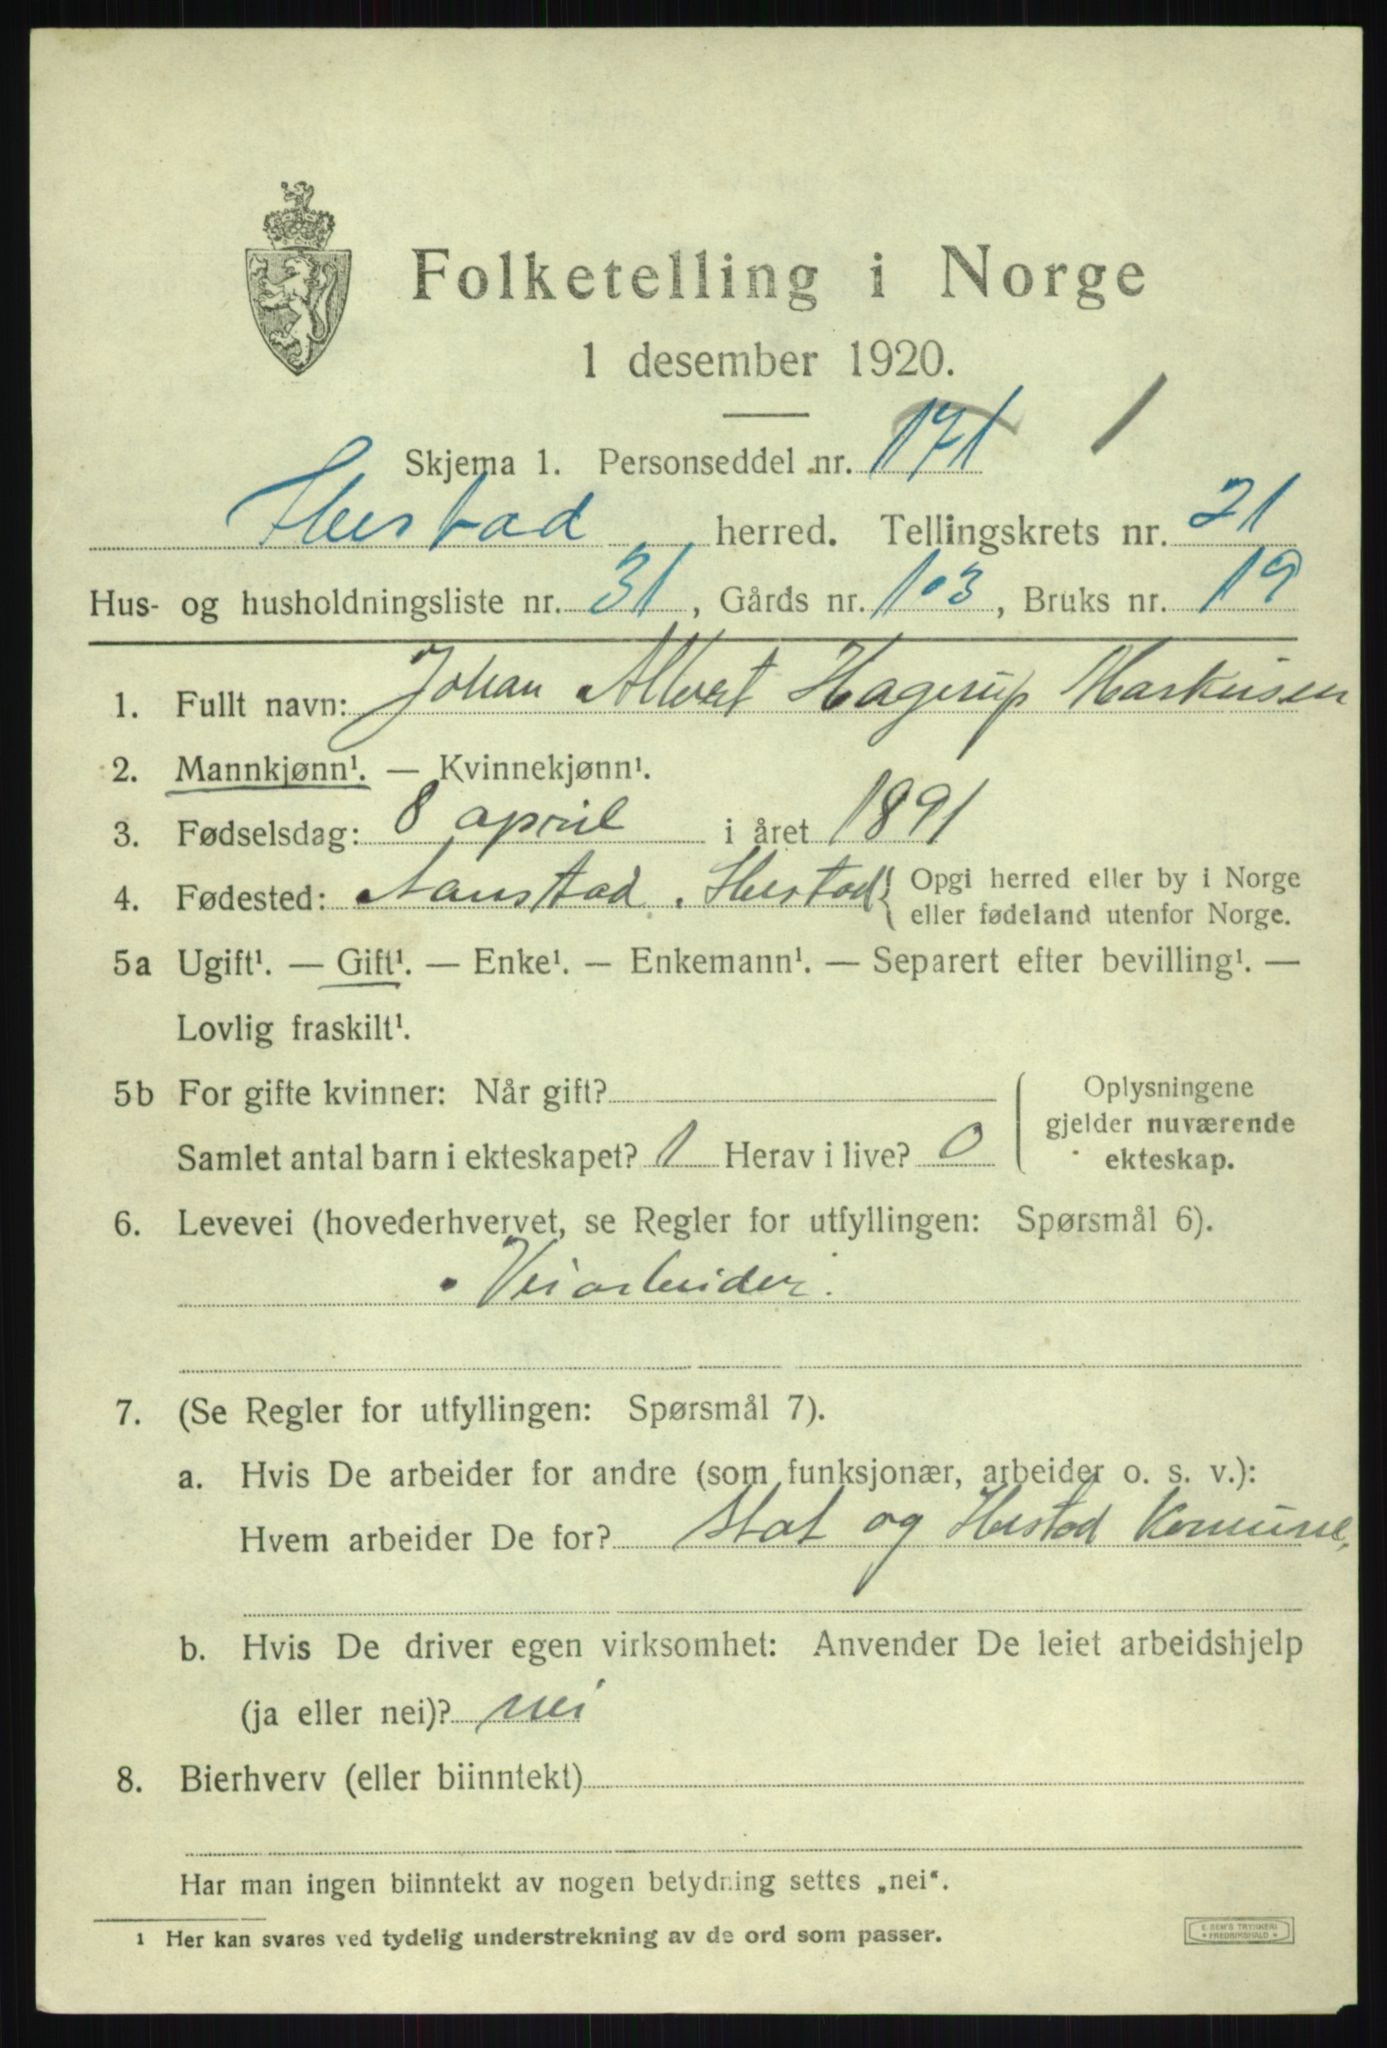 Folketelling i Norge
1 desember 1920.
Skjema 1. Personseddel nr. 171 1
Ibestad herred. Tellingskrets nr. 21
Hus- og husholdningsliste nr. 31, Gårds nr. 103, Bruks nr. 19
1. Fullt navn: Johan Albert Hagerup Markusen
2. Mannkjønn¹. — Kvinnekjønn¹.
3. Fødselsdag: 8 april i året 1891
4. Fødested: Aanstad. Ibestad { Opgi herred eller by i Norge
eller fødeland utenfor Norge.
5a Ugift¹. — Gift¹. — Enke¹. — Enkemann¹. — Separert efter bevilling¹. —
Lovlig fraskilt¹.
5b For gifte kvinner: Når gift?
Samlet antal barn i ekteskapet? 1 Herav i live? 0
Oplysningene
gjelder nuværende
ekteskap.
6. Levevei (hovederhvervet, se Regler for utfyllingen: Spørsmål 6).
Veiarbeider.
7. (Se Regler for utfyllingen: Spørsmål 7).
a. Hvis De arbeider for andre (som funksjonær, arbeider o. s. v.):
Hvem arbeider De for? Stat og Ibestad Komune,
b. Hvis De driver egen virksomhet: Anvender De leiet arbeidshjelp
(ja eller nei)? nei
8. Bierhverv (eller biinntekt)
Har man ingen biinntekt av nogen betydning settes „nei“.
1 Her kan svares ved tydelig understrekning av de ord som passer.
E. SEM'S TRYKKERI
FREDRIKSHALD